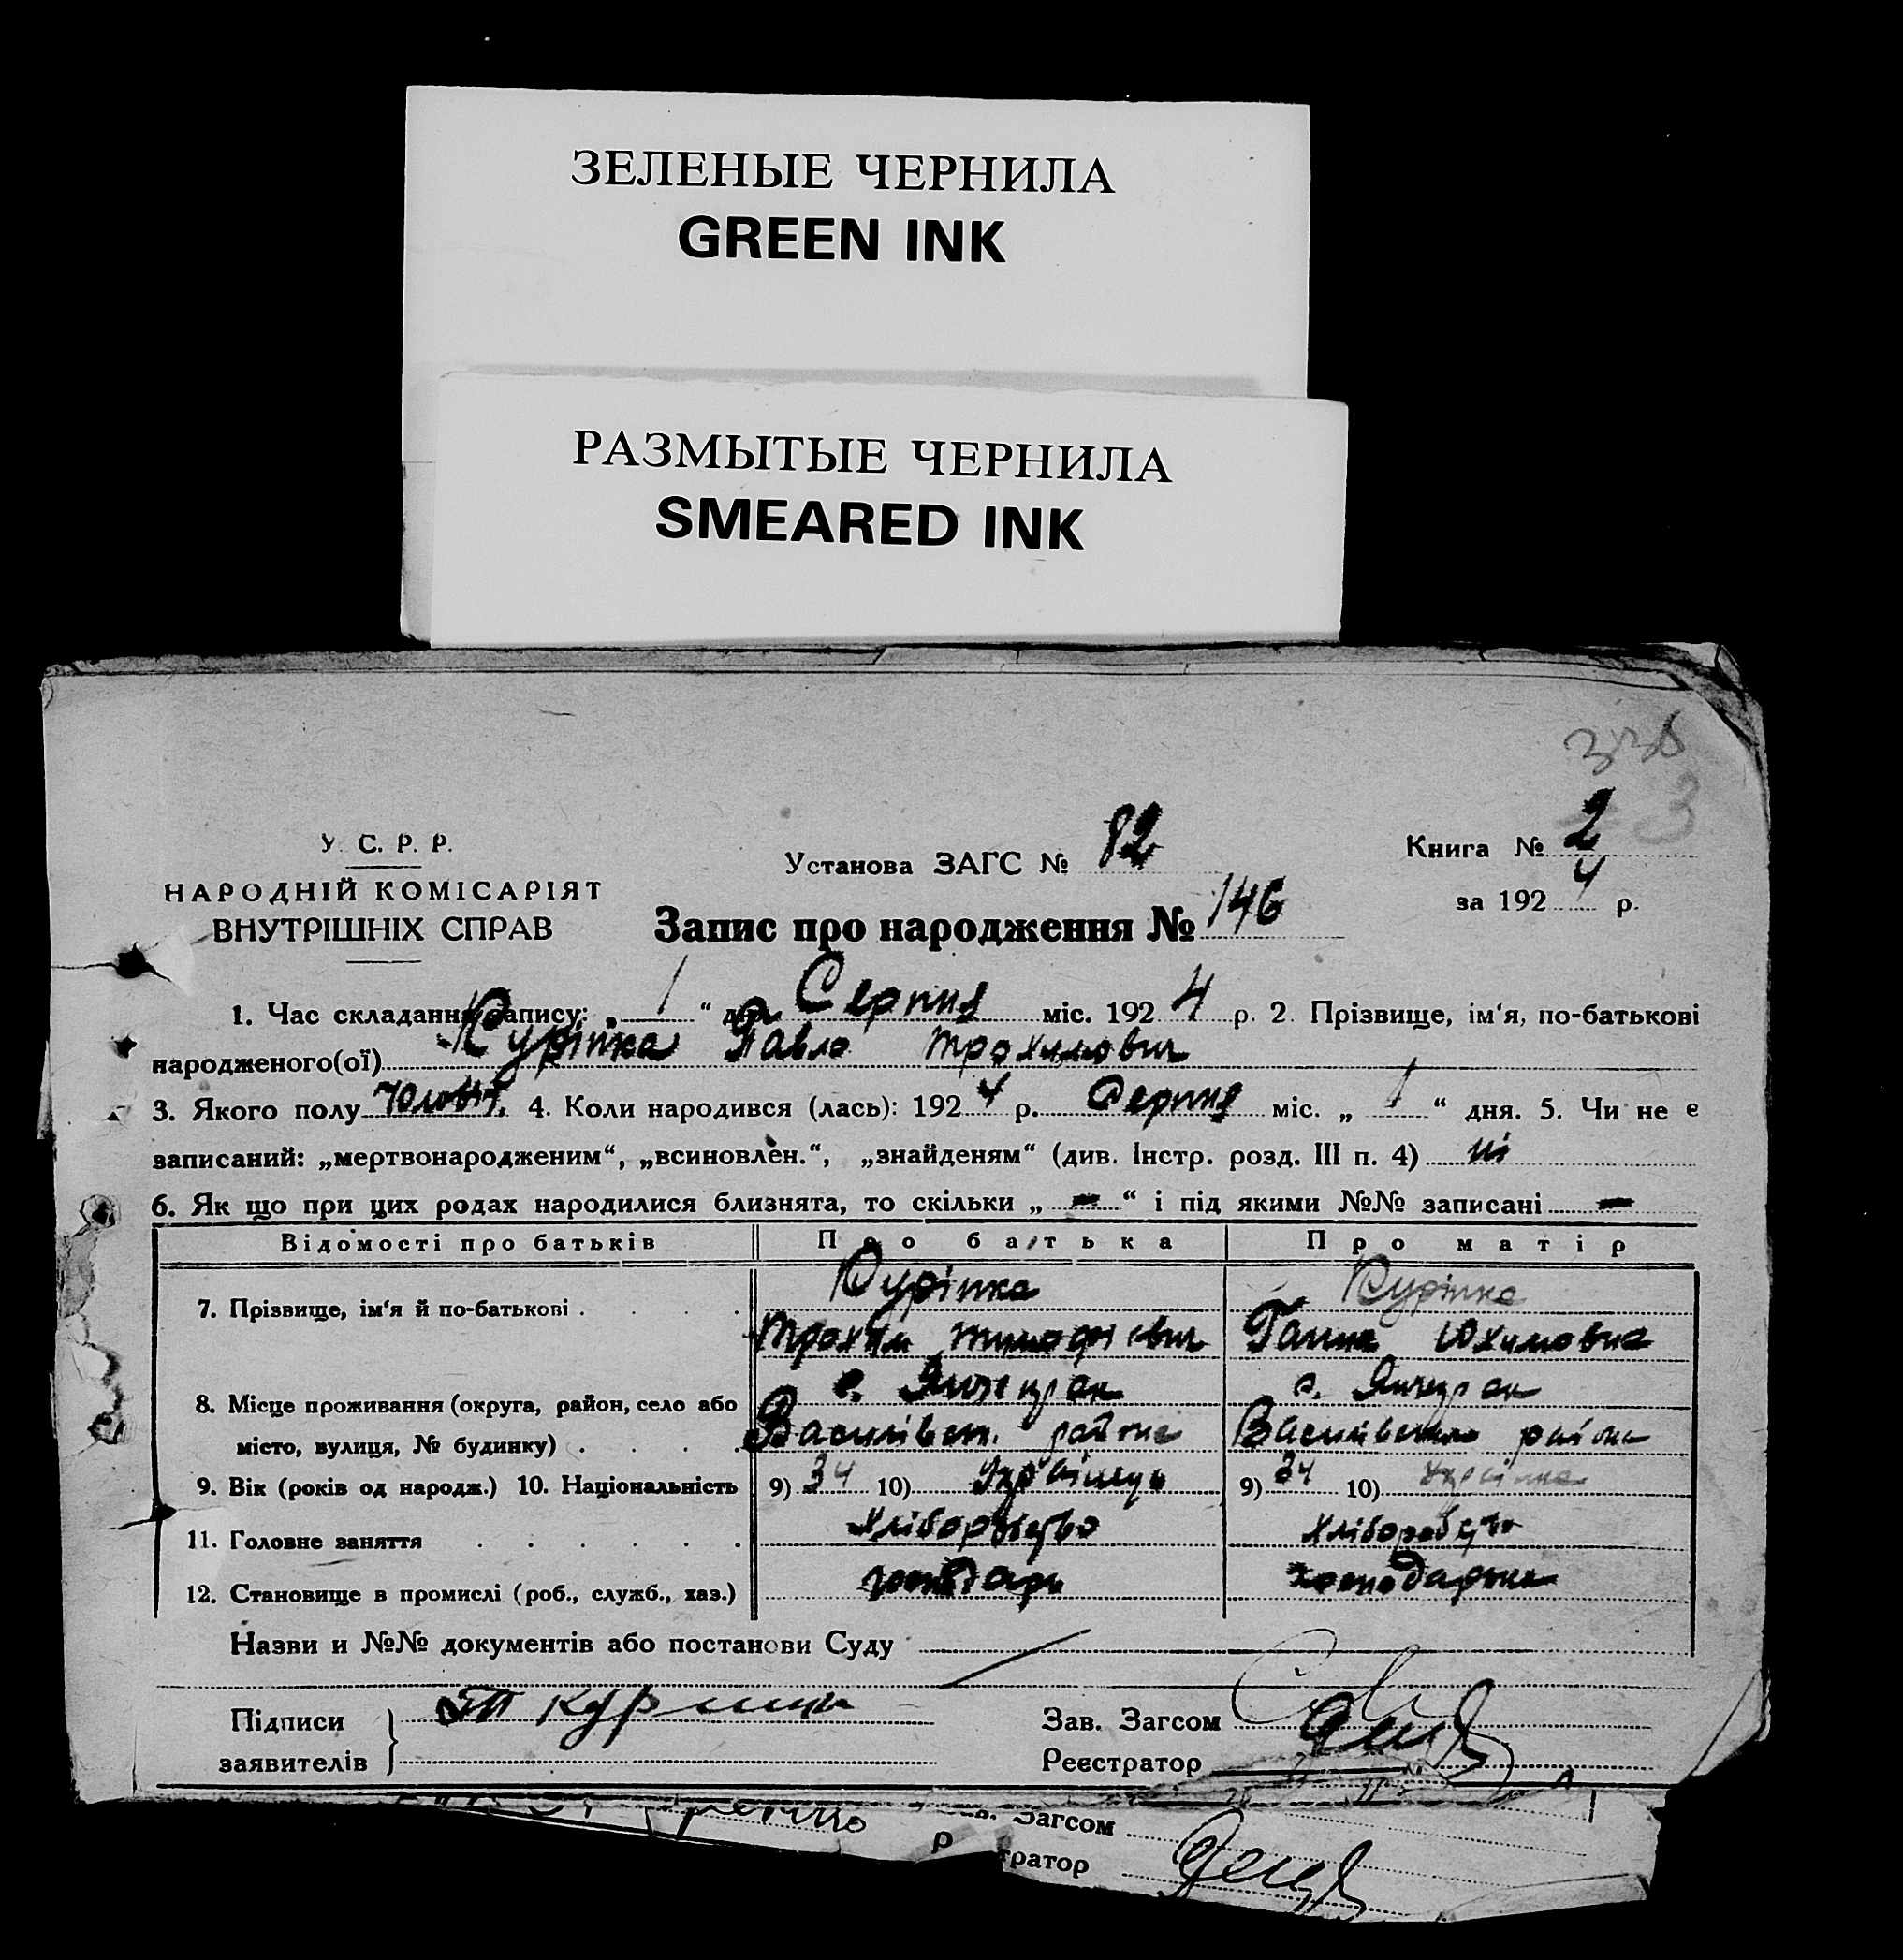 ЗЕЛЕНЫЕ ЧЕРНИЛА
GREEN INK
РАЗМЫТЫЕ ЧЕРНИЛА
SMEARED INK
3
У. С. Р. Р.
НАРОДНІЙ КОМІСАРІЯТ
ВНУТРІШНІХ СПРАВ
Установа ЗАГС № 82
Книга № 2
за 1924 р.
Запис про народження № 146
1. Час складання запису: „ 1 “ дня Серпня міс. 1924 р. 2. Прізвище, ім‘я, по-батькові
народженого(ої) Куріпка Павло Трохимович
3. Якого полу 4. Коли народився (лась): 1924 р. Серпня міс. „ 1 “ дня. 5. Чи не є
записаний: „мертвонародженим“, „всиновлен.“, „знайденям“ (див. Інстр. розд. III п. 4) ні
6. Як що при цих родах народилися близнята, то скільки „ — “ і під якими №№ записані —
Відомості про батьків Про батька Про матір
7. Прізвище, ім‘я й по-батькові . . . . Куріпка Куріпка
Трохим Тимофієвич Ганна Юхимовна
с. Янчекрак с. Янчекрак
8. Місце проживання (округа, район, село або
місто, вулиця, № будинку) . . . . Василівськ. району Василівського району
9. Вік (років од народж.) 10. Національність 9) 34 10) Українець 9) 34 10) Українка
11. Головне заняття . . . . . . Хліборобство Хліборобство
12. Становище в промислі (роб., служб., хаз.) господарь господарька
Назви и №№ документів або постанови Суду
Підписи
заявителів
Зав. Загсом
Реєстратор
Загсом
р
тратор